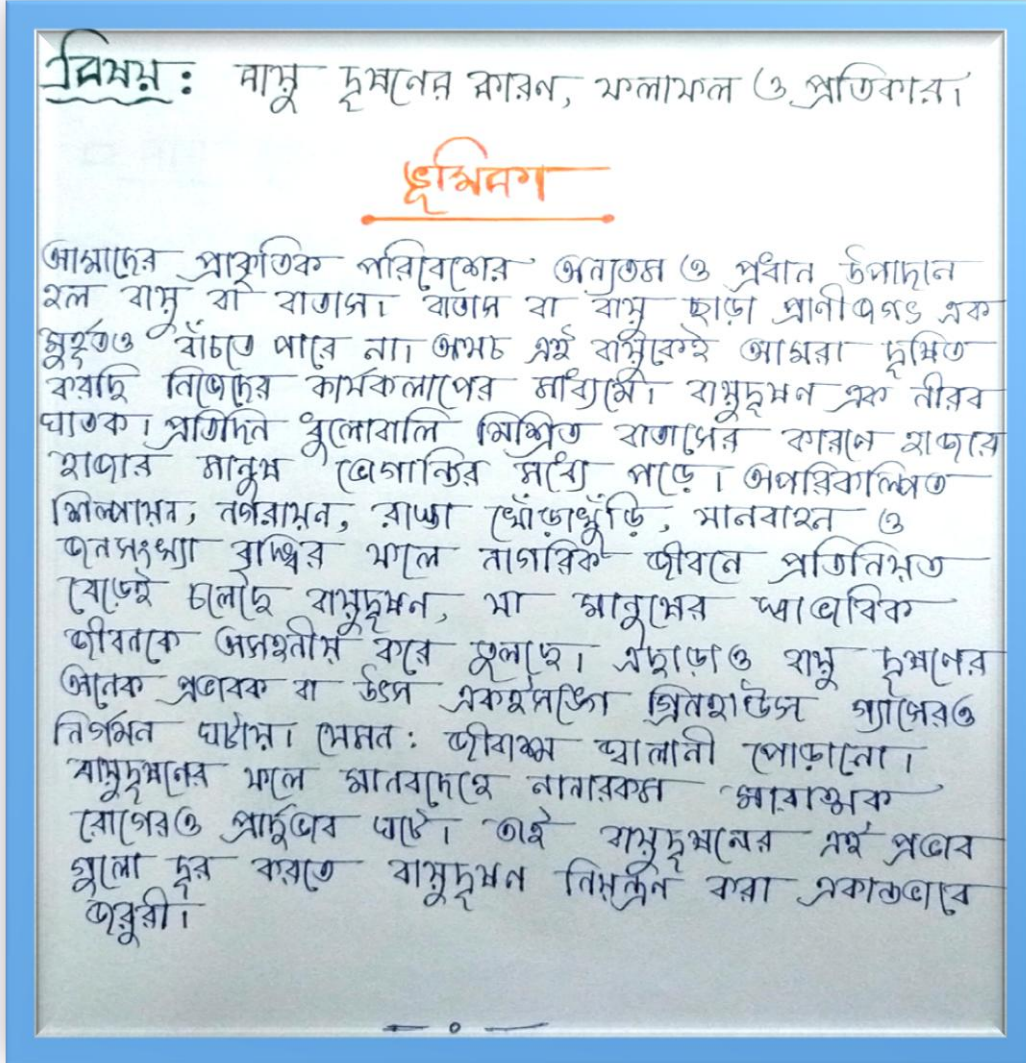 বিষয়: বায়ু দূষনের কারন, ফলাফল ও প্রতিকার।
ভূমিকা
আমাদের প্রাকৃতিক পরিবেশের অন্যতম ও প্রধান উপাদান
হল বায়ু বা বাতাস। বাতাস বা বায়ু ছাড়া প্রাণীজগৎ এক
মুহূর্তও বাঁচতে পারে না। অথচ এই বায়ুকেই আমরা দূষিত
করছি নিজেদের কার্যকলাপের মাধ্যমে। বায়ুদূষন এক নীরব
ঘাতক। প্রতিদিন ধুলোবালি মিশ্রিত বাতাসের কারনে হাজারে
হাজার মানুষ ভোগান্তির মধ্যে পড়ে। অপরিকল্পিত
শিল্পায়ন, নগরায়ন, রাস্তা খোঁড়াখুঁড়ি, যানবাহন ও
জনসংখ্যা বৃদ্ধির ফলে নাগরিক জীবনে প্রতিনিয়ত
বেড়েই চলেছে বায়ুদূষন, যা মানুষের স্বাভাবিক
জীবনকে অসহনীয় করে তুলছে। এছাড়াও বায়ু দূষণের
অনেক প্রভাবক বা উৎস একইসঙ্গে গ্রিনহাউস গ্যাসেরও
নির্গমন ঘটায়। যেমন: জীবাশ্ম জ্বালানী পোড়ানো।
বায়ুদূষনের ফলে মানবদেহে নানারকম মারাত্মক
রোগেরও প্রার্দুভাব ঘটে। তাই বায়ুদূষনের এই প্রভাব
গুলো দূর করতে বায়ুদূষন নিয়ন্ত্রন করা একান্তভাবে
জরুরী।